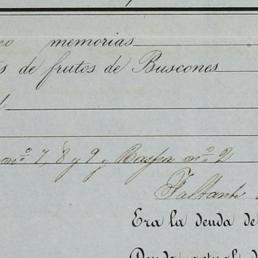 memorias
de frutos de Buscones
nº 7, 8 y 9 y nº 2
Faltante
Era la deuda de